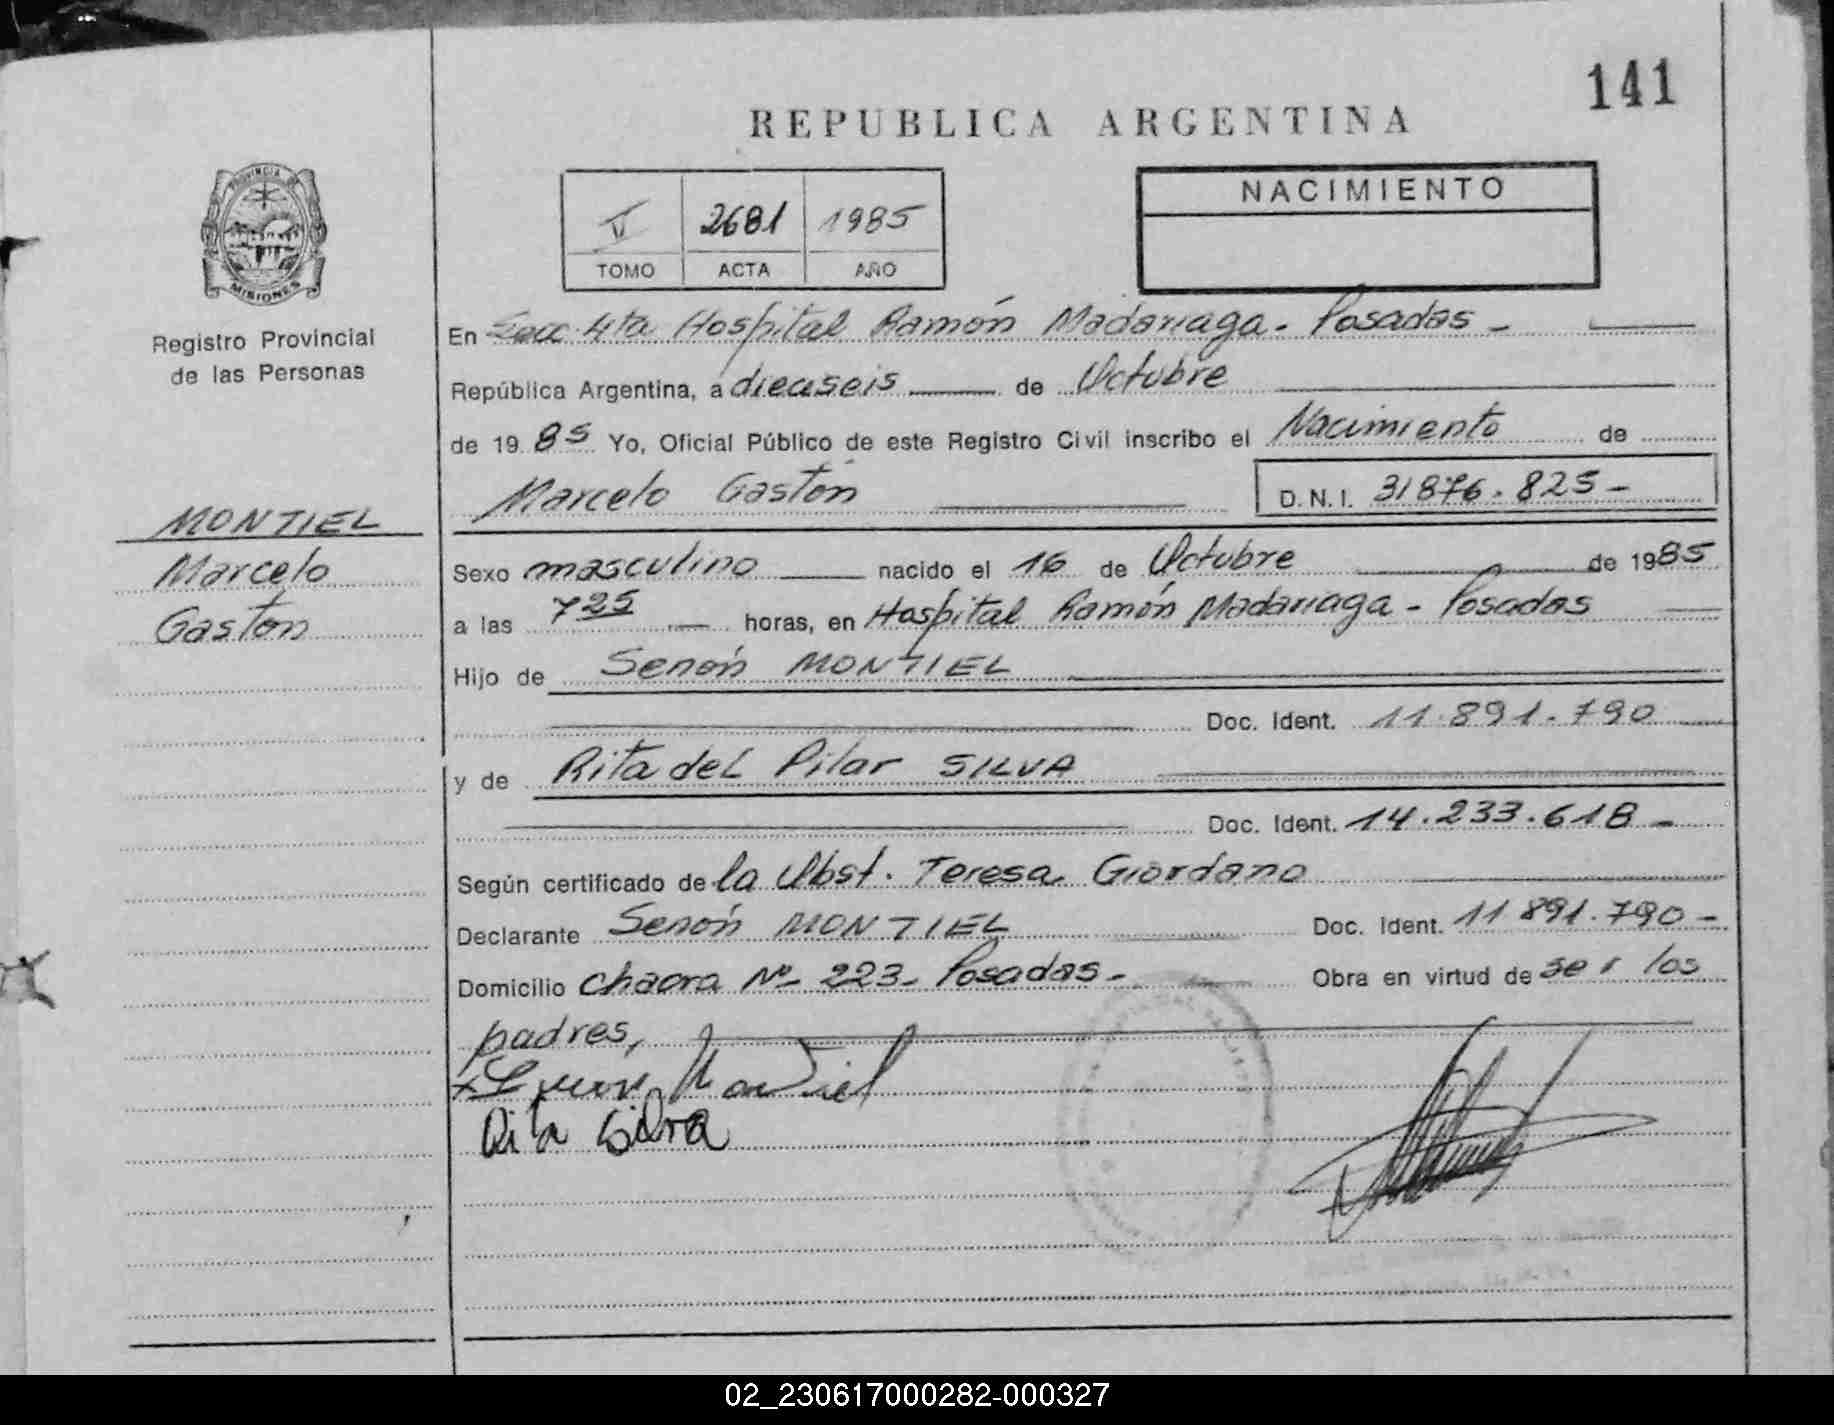 141
REPUBLICA ARGENTINA
PROVINCIA DE
MISIONES
Registro Provincial
de las Personas
II 2681 1985
TOMO ACTA AÑO
NACIMIENTO
En Secc. 4ta Hospital Ramón Madariaga - Posadas -
República Argentina, a dieciseis de Octubre
de 1985 Yo, Oficial Público de este Registro Civil inscribo el Nacimiento de
Marcelo Gastón D.N.I. 31876.825-
MONTIEL
Marcelo
Gastón
Sexo masculino nacido el 16 de Octubre de 1985
a las 7 25 horas, en Hospital Ramón Madariaga - Posadas
Hijo de Senón MONTIEL
Doc. Ident. 11.891.790
y de Rita del Pilar SILVA
Doc. Ident. 14.233.618-
Según certificado de la Obst. Teresa Giordano
Declarante Senón MONTIEL Doc. Ident. 11 891.790-
Domicilio Chacra Nº 223- Posadas- Obra en virtud de ser los
padres,
Senon Montiel
Rita Silva
02_230617000282-000327